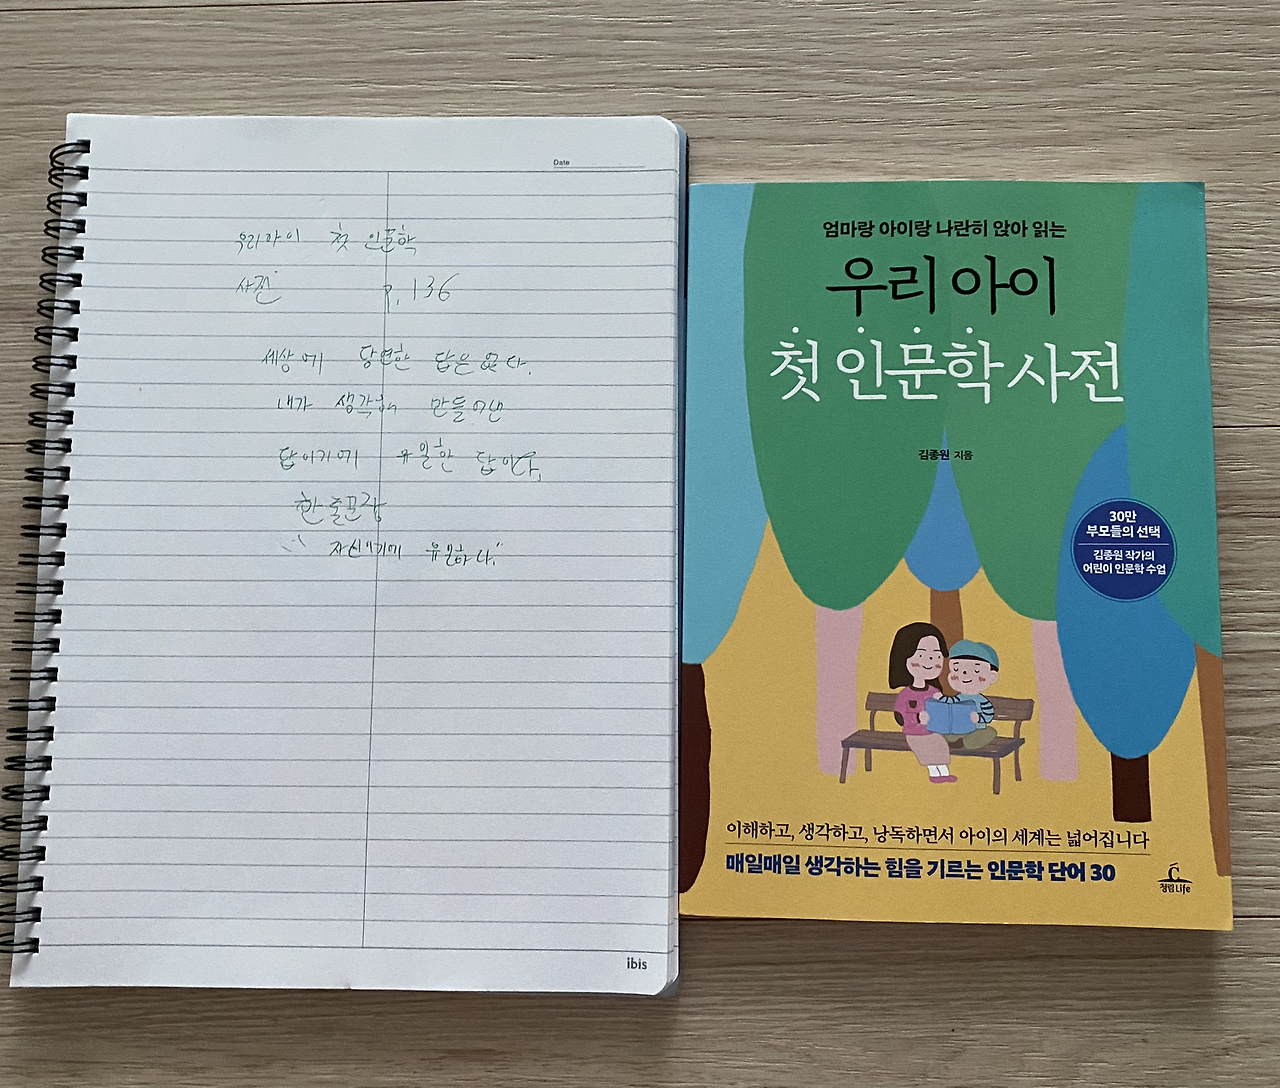 Date
우리아이 첫 인문학
사전 p. 136
세상에 당연한 답은 없다.
내가 생각해 만들어낸
답이기에 유일한 답이다.
한줄문장
자신이기에 유일하다."
ibis
엄마랑 아이랑 나란히 앉아 읽는
우리 아이
첫 인문학 사전
김종원 지음
30만
부모들의 선택
김종원 작가의
어린이 인문학 수업
이해하고, 생각하고, 낭독하면서 아이의 세계는 넓어집니다
매일매일 생각하는 힘을 기르는 인문학 단어 30
청림Life